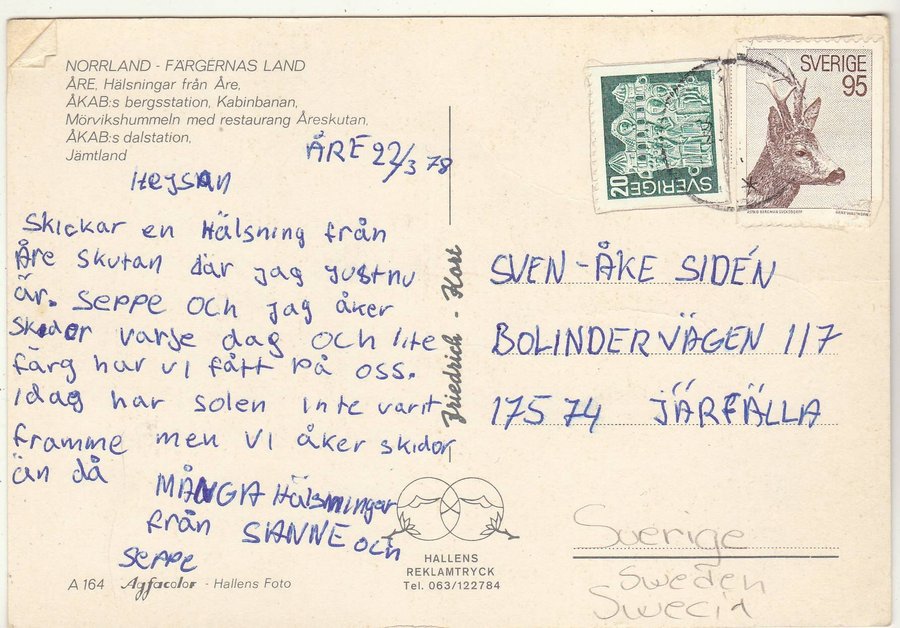 NORRLAND - FÄRGERNAS LAND
ÅRE, Hälsningar från Åre,
ÅKAB:s bergsstation, Kabinbanan,
Mörvikshummeln med restaurang Åreskutan,
ÅKAB:s dalstation,
Jämtland
ÅRE 22/3 78
Hejsan
Skickar en Hälsning från
Åre skutan där jag just nu
är. Seppe och jag åker
skidor varje dag och lite
färg har vi fått på oss.
idag har solen inte varit
framme men vi åker skidor
än då
MÅNGA Hälsningar
från SANNE och
Seppe
A 164 Agfacolor - Hallens Foto
Friedrich - Kort
HALLENS
REKLAMTRYCK
Tel. 063/122784
SVERIGE
20
SVERIGE
95
SVEN-ÅKE SIDÉN
BOLINDERVÄGEN 117
175 74 JÄRFÄLLA
Sverige
Sweden